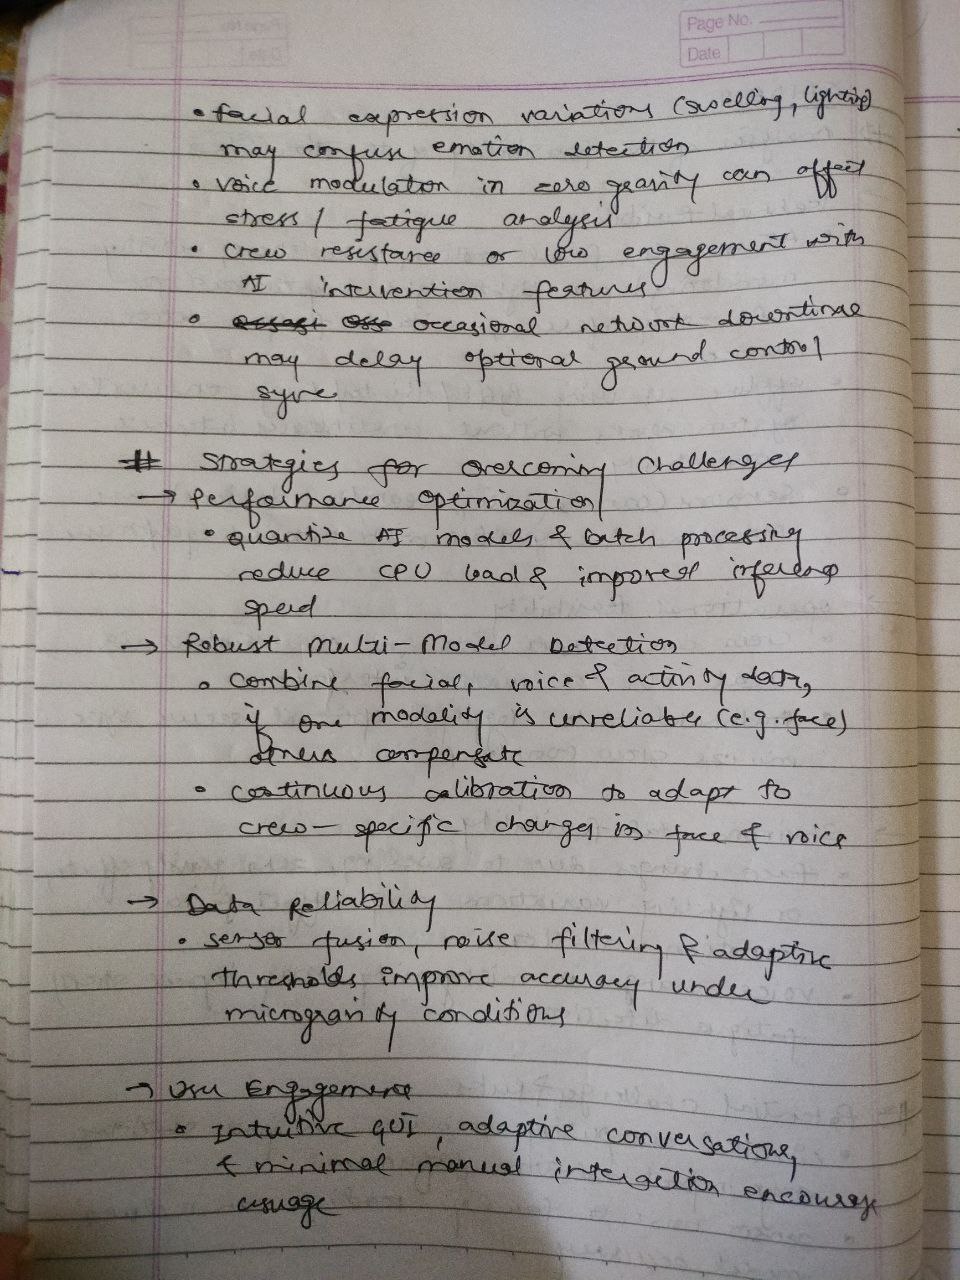 Page No.
Date
• facial expression variations (swelling, lighting)
may confuse emotion detection
• voice modulation in zero gravity can affect
stress / fatigue analysis
• crew resistance or low engagement with
AI intervention features
• occasional network downtime
may delay optional ground control
sync
# Strategies for overcoming challenges
→ Performance optimization
• quantize AI models & batch processing
reduce CPU load & improves inference
speed
→ Robust Multi-Model Detection
• combine facial, voice & activity data,
if one modality is unreliable (e.g. face)
others compensate
• continuous calibration to adapt to
crew-specific changes in face & voice
→ Data Reliability
• sensor fusion, noise filtering & adaptive
thresholds improve accuracy under
microgravity conditions
→ User Engagement
• Intuitive GUI, adaptive conversations,
& minimal manual interaction encourage
usuage